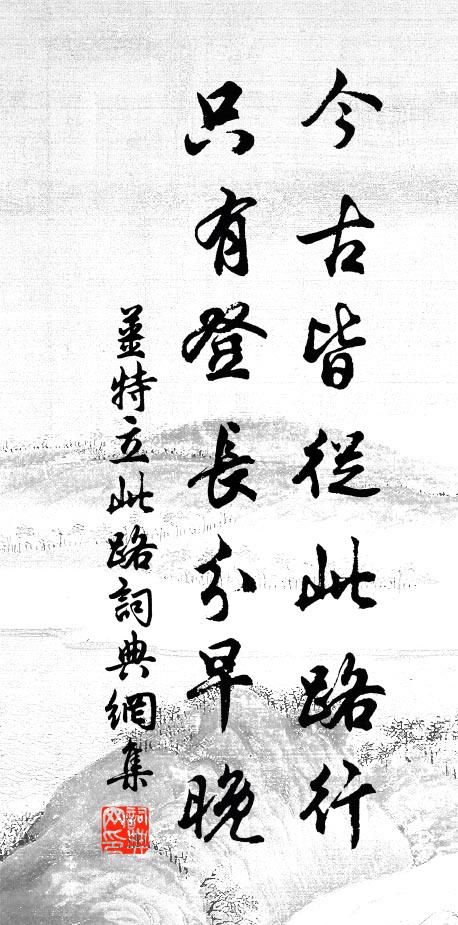 今古皆從此路行
只有登長分早晚
姜特立此路詞典網集
詞典網印